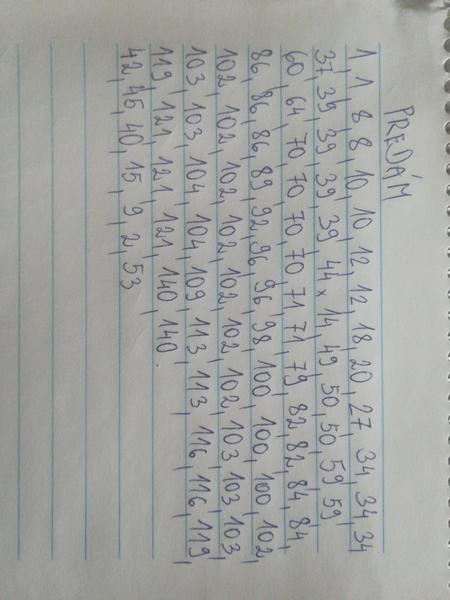 PREDÁM
1, 1, 8, 8, 10, 10, 12, 12, 18, 20, 27, 34, 34, 34
37, 39, 39, 39, 39, 44 x 14, 49, 50, 50, 59, 59
60, 64, 70, 70, 70, 70, 71, 71, 79, 82, 82, 84, 84,
86, 86, 86, 89, 92, 96, 96, 98, 100, 100, 100, 102,
102, 102, 102, 102, 102, 102, 102, 103, 103, 103,
103, 103, 104, 104, 109, 113, 113, 116, 116, 119,
119, 121, 121, 121, 140, 140
42, 45, 40, 15, 9, 2, 53